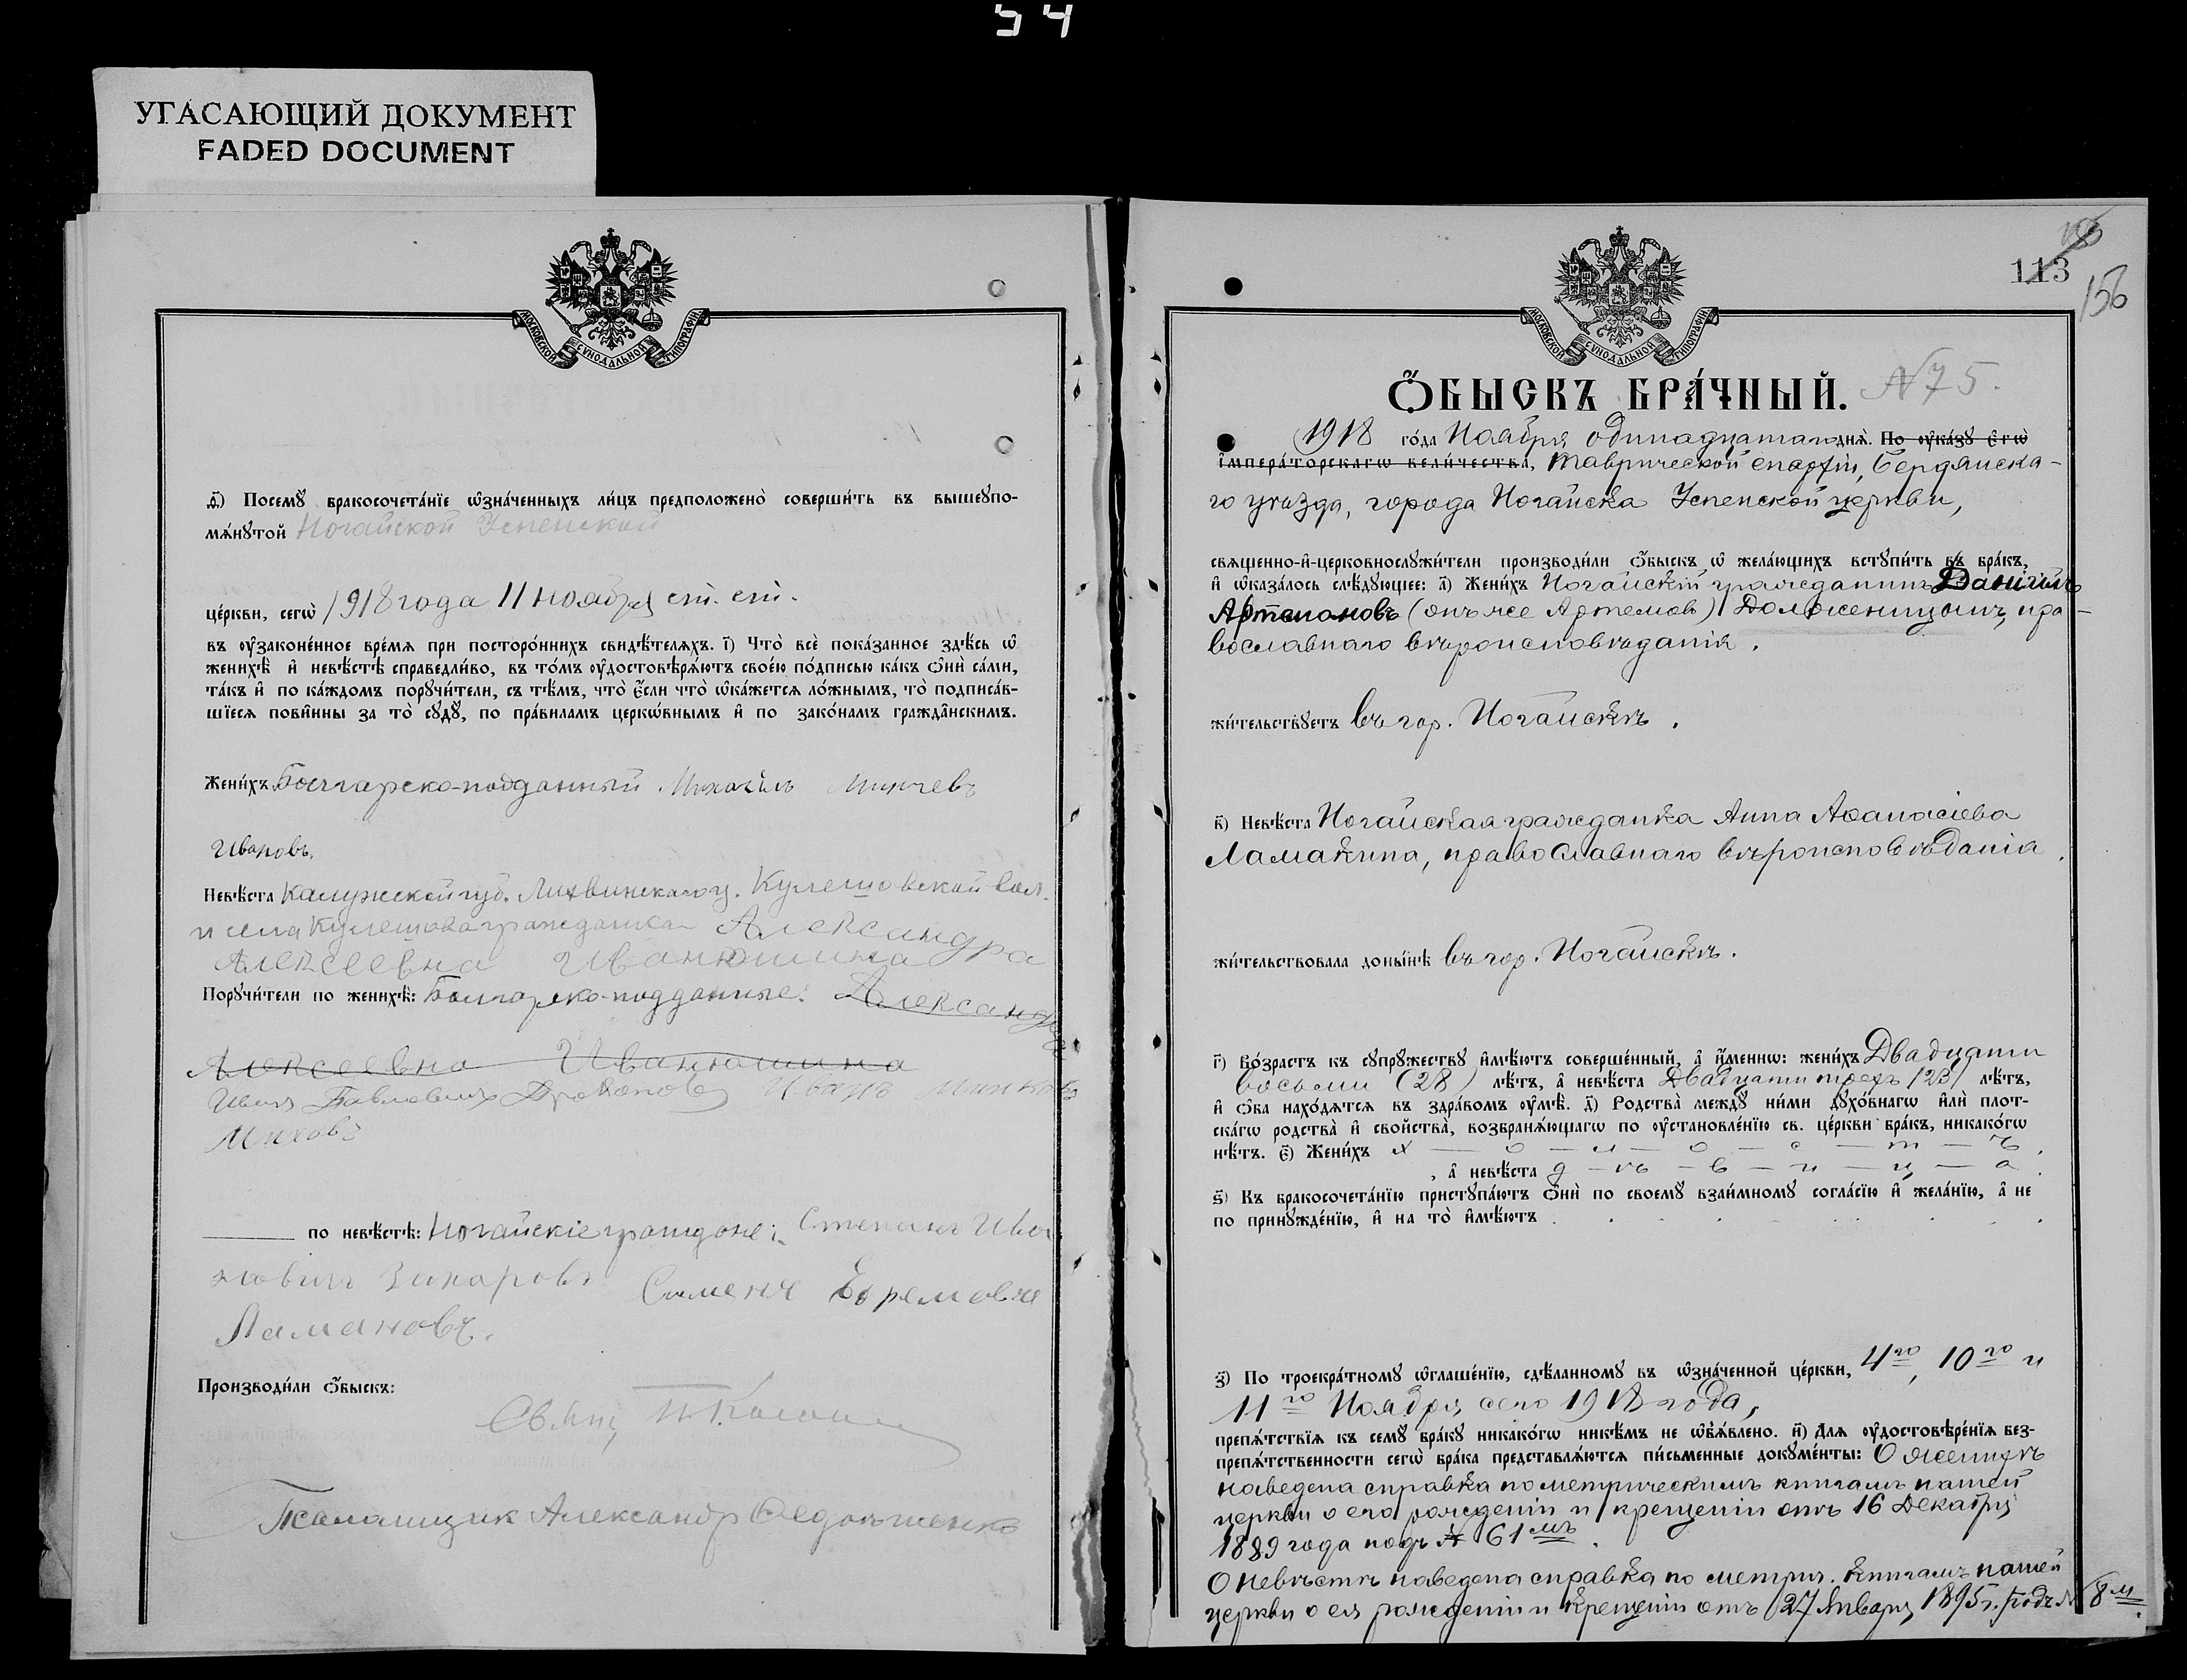 54
УГАСАЮЩИЙ ДОКУМЕНТ
FADED DOCUMENT
МОСКОВСКОЙ СѴНОДАЛЬНОЙ ТИПОГРАФІИ
д҃) Посемꙋ бракосочета́нїе ѡ҆зна́ченныхъ ли́цъ предположено̀ соверши́ть въ вышеꙋпо-
мѧ́нꙋтой Ногайской Успенской
це́ркви, сегѡ̀ 1918 года 11 ноября ст. ст.
въ ᲂу҆зако́нное вре́мѧ при посторо́ннихъ свидѣ́телѧхъ. і҃) Что̀ всѐ пока́занное здѣ́сь ѡ҆
женихѣ̀ и҆ невѣ́стѣ справедли́во, въ то́мъ ᲂу҆достовѣрѧ́ютъ свое́ю по́дписью ка́къ ѻ҆нѝ са́ми,
та́къ и҆ по ка́ждомъ порꙋчи́тели, съ тѣ́мъ, что̀ є҆́сли что̀ ѡ҆ка́жетсѧ ло́жнымъ, то̀ подписа́в-
шїесѧ пови́нны за то̀ сꙋдꙋ̀, по пра́виламъ церко́внымъ и҆ по зако́намъ гражда́нскимъ.
Жени́хъ Болгарско-подданный Михаилъ Минчевъ
Ивановъ.
Невѣ́ста Калужской губ. Лихвинскаго у. Кулешовской вол.
и села Кулешова гражданка Александра
Алексеевна Иванюшина
Порꙋчи́тели по женихѣ̀: Болгарско-подданные: Александра
Алексеевна Иванюшина
Иван Павлович Иванъ Минковъ
Миховъ
по невѣ́стѣ: Ногайскіе граждане: Степанъ Ива
новичъ Захаровъ Семенъ Ефремовъ
Ламановъ.
Производи́ли ѻ҆́быскъ:
Свящ.
Псаломщик Александр
113
156
МОСКОВСКОЙ СѴНОДАЛЬНОЙ ТИПОГРАФІИ
Ѻ҆́БЫСКЪ БРА́ЧНЫЙ. N 75.
1918 го́да Ноября одинадцатаго днѧ̀. По ᲂу҆ка́зꙋ є҆гѡ̀
и҆мпера́торскагѡ вели́чества, Таврической епархіи, Бердянска-
го уѣзда, города Ногайска Успенской церкви,
свѧще́нно-и҆-церковнослꙋжи́тели производи́ли ѻ҆́быскъ ѡ҆ жела́ющихъ встꙋпи́ть въ бра́къ,
и҆ ѡ҆каза́лось слѣ́дꙋющее: а҃) Жени́хъ Ногайскій гражданинъ Даніилъ
Артамоновъ (онъ же Артемов) Долженицынъ, пра-
вославнаго вѣроисповѣданія.
жи́тельствꙋетъ въ гор. Ногайскѣ.
в҃) Невѣ́ста Ногайская гражданка Анна Аѳанасіева
Ламакина, православнаго вѣроисповѣданія.
жи́тельствовала доны́нѣ въ гор. Ногайскѣ.
г҃) Во́зрастъ къ сꙋпрꙋ́жествꙋ и҆мѣ́ютъ соверше́нный, а҆ и҆́меннѡ: жени́хъ Двадцати
восьми (28) лѣ́тъ, а҆ невѣ́ста Двадцати трехъ (23) лѣ́тъ,
и҆ ѻ҆́ба нахо́дѧтсѧ въ здра́вомъ ᲂу҆мѣ̀. д҃) Родства̀ междꙋ̀ ни́ми дꙋхо́внагѡ и҆лѝ плот-
ска́гѡ родства̀ и҆ сво́йства, возбранѧ́ющагѡ по ᲂу҆становле́нїю св. це́ркви бра́къ, никако́гѡ
нѣ́тъ. є҃) Жени́хъ х — о — л — о — с — т — ъ,
а҆ невѣ́ста д — ѣ — в — и — ц — а.
ѕ҃) Къ бракосочета́нїю пристꙋпа́ютъ ѻ҆нѝ по своемꙋ̀ взаи́мномꙋ согла́сїю и҆ жела́нїю, а҆ не
по принꙋжде́нїю, и҆ на то̀ и҆мѣ́ютъ . . . . . .
з҃) По троекра́тномꙋ ѡ҆глаше́нїю, сдѣ́ланномꙋ въ ѡ҆зна́ченной це́ркви, 4го, 10го и
11го Ноября сего 1918 года,
препѧ́тствїѧ къ семꙋ̀ бра́кꙋ никако́гѡ никѣ́мъ не ѡ҆бъѧ́влено. и҃) Длѧ ᲂу҆достовѣре́нїѧ без-
препѧ́тственности сегѡ̀ бра́ка представлѧ́ютсѧ пи́сьменные докꙋме́нты: О женихѣ
наведена справка по метрическимъ книгамъ нашей
церкви о его рожденіи и крещеніи отъ 16 Декабря
1889 года подъ № 61мъ.
О невѣстѣ наведена справка по метрич. книгамъ нашей
церкви о ея рожденіи и крещеніи отъ 27 Января 1895 г. подъ № 8м.